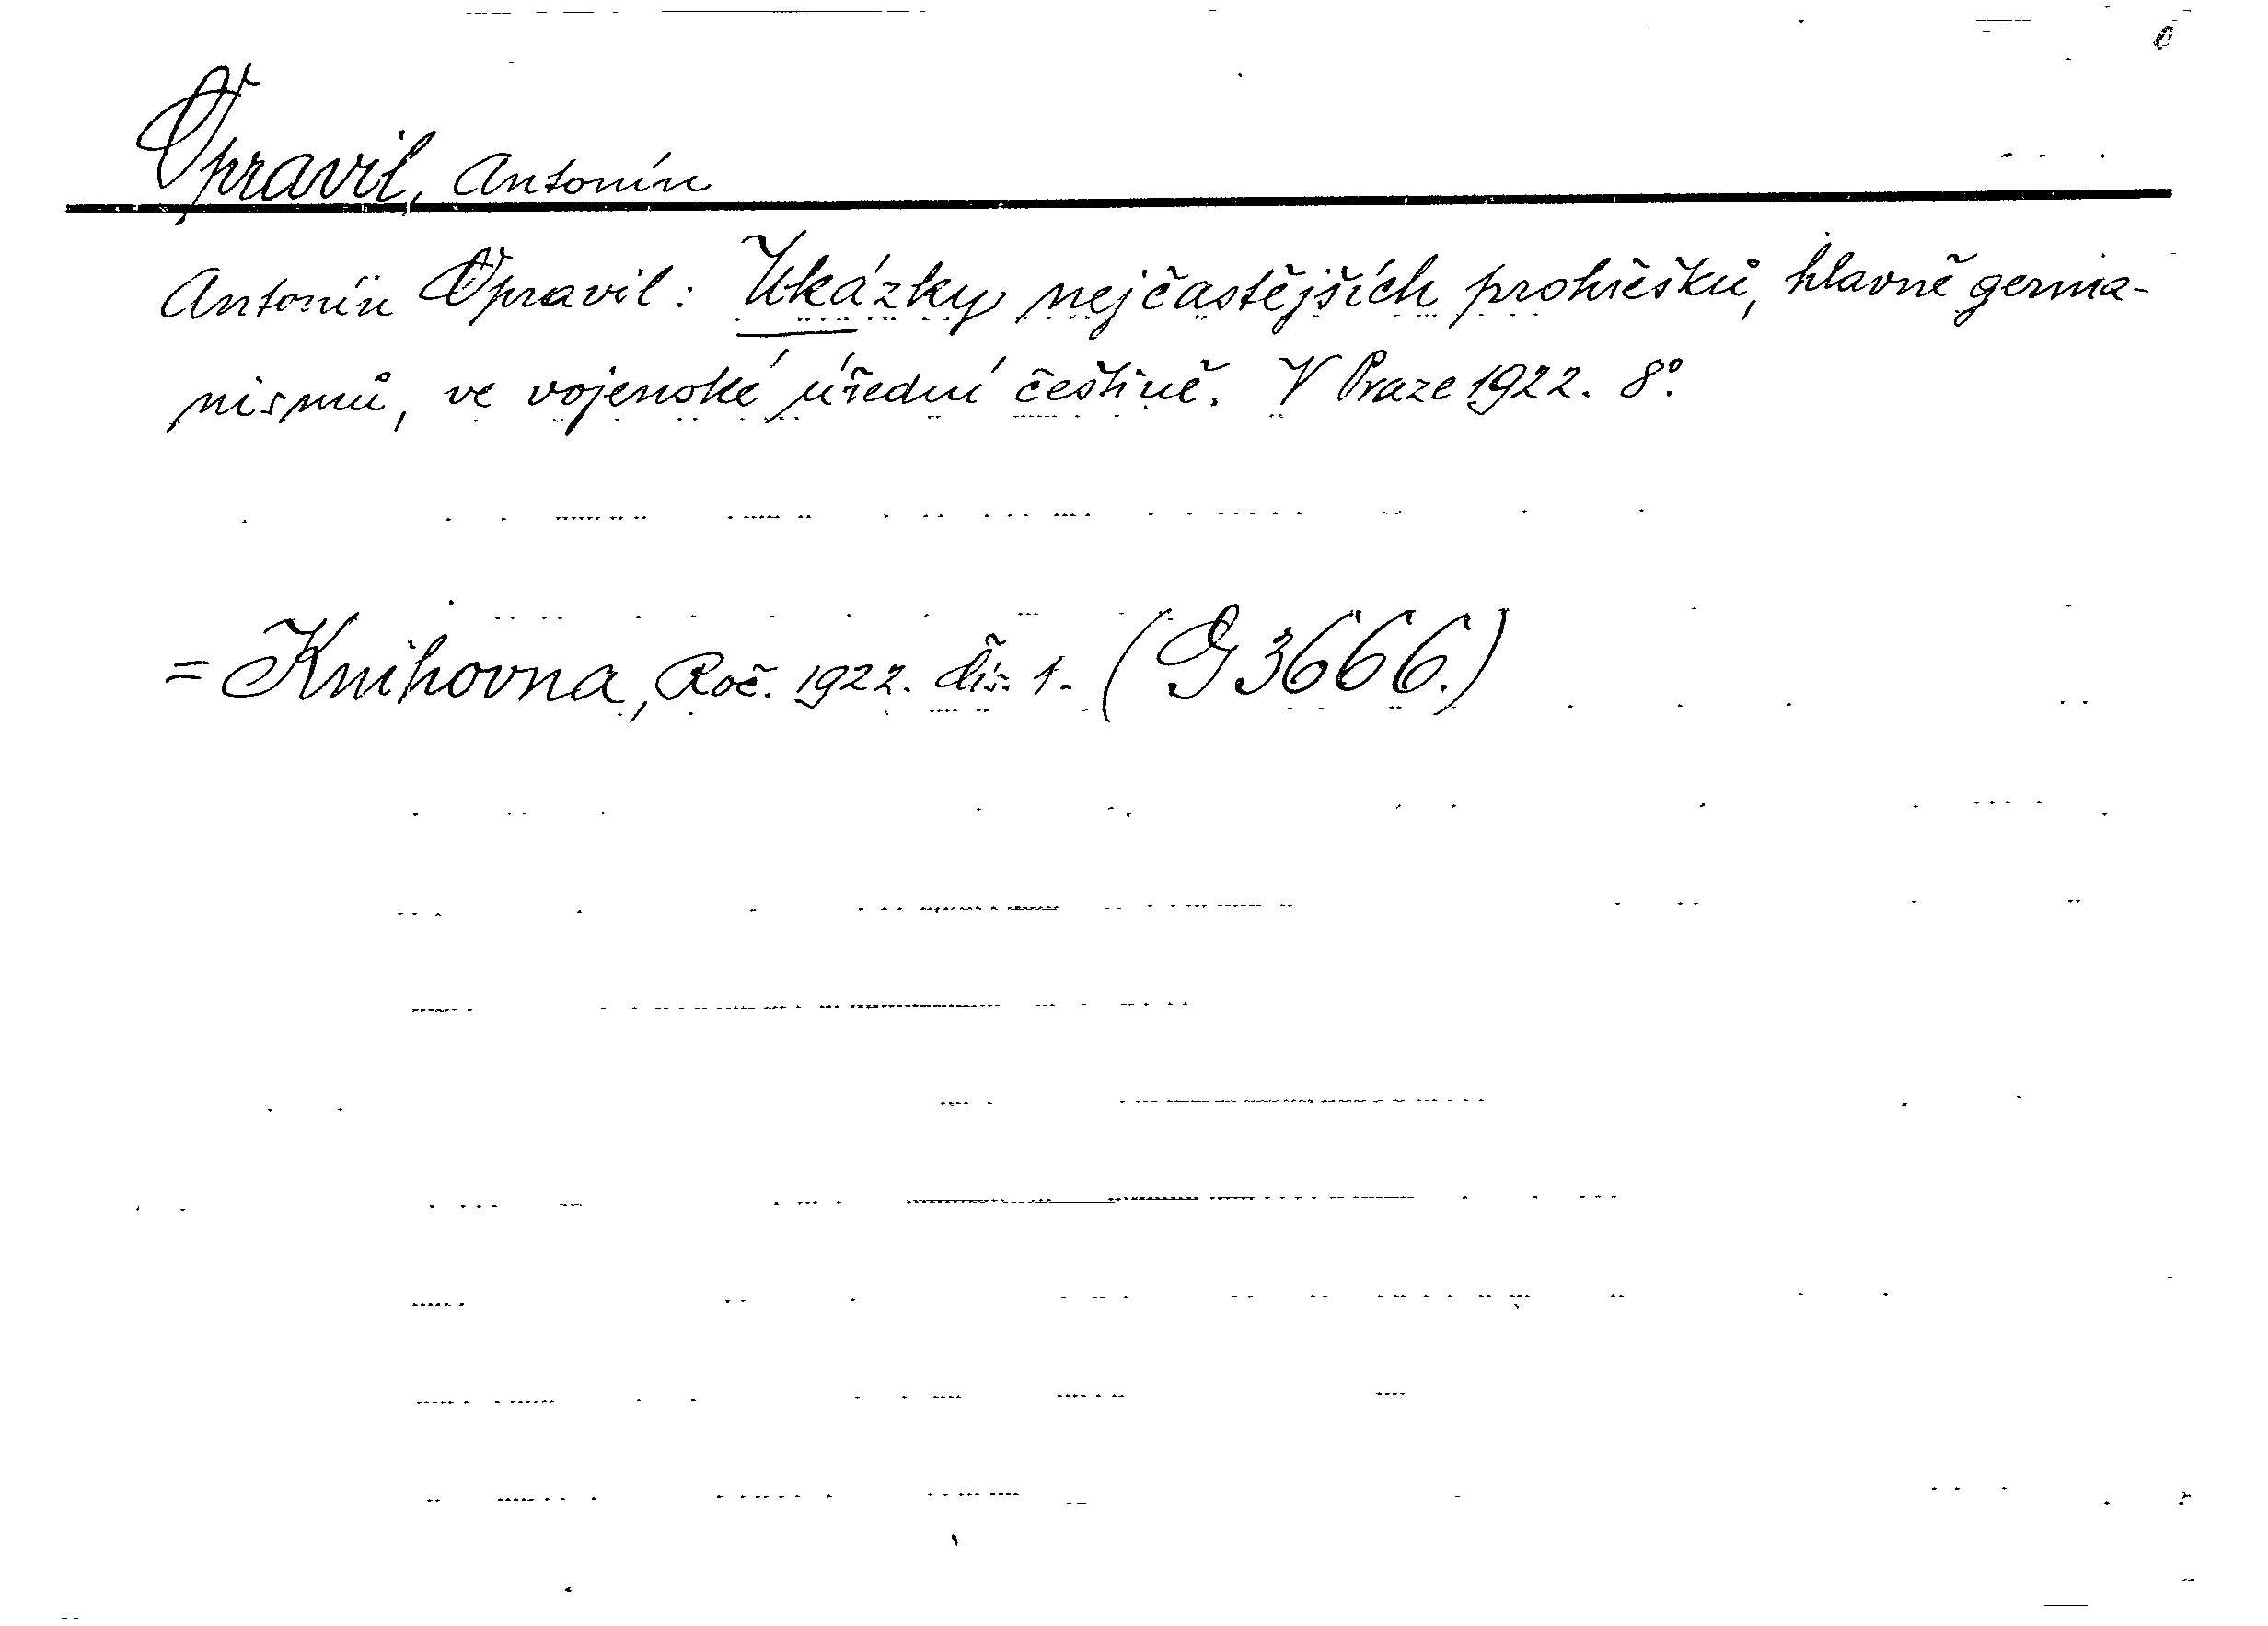 Opravil, Antonín
Antonín Opravil: Ukázky nejčastějších prohřešků, hlavně germa-
nismů, ve vojenské úřední češtině. V Praze 1922. 8°.
= Knihovna, Roč. 1922. čís. 1. (G 3666.)